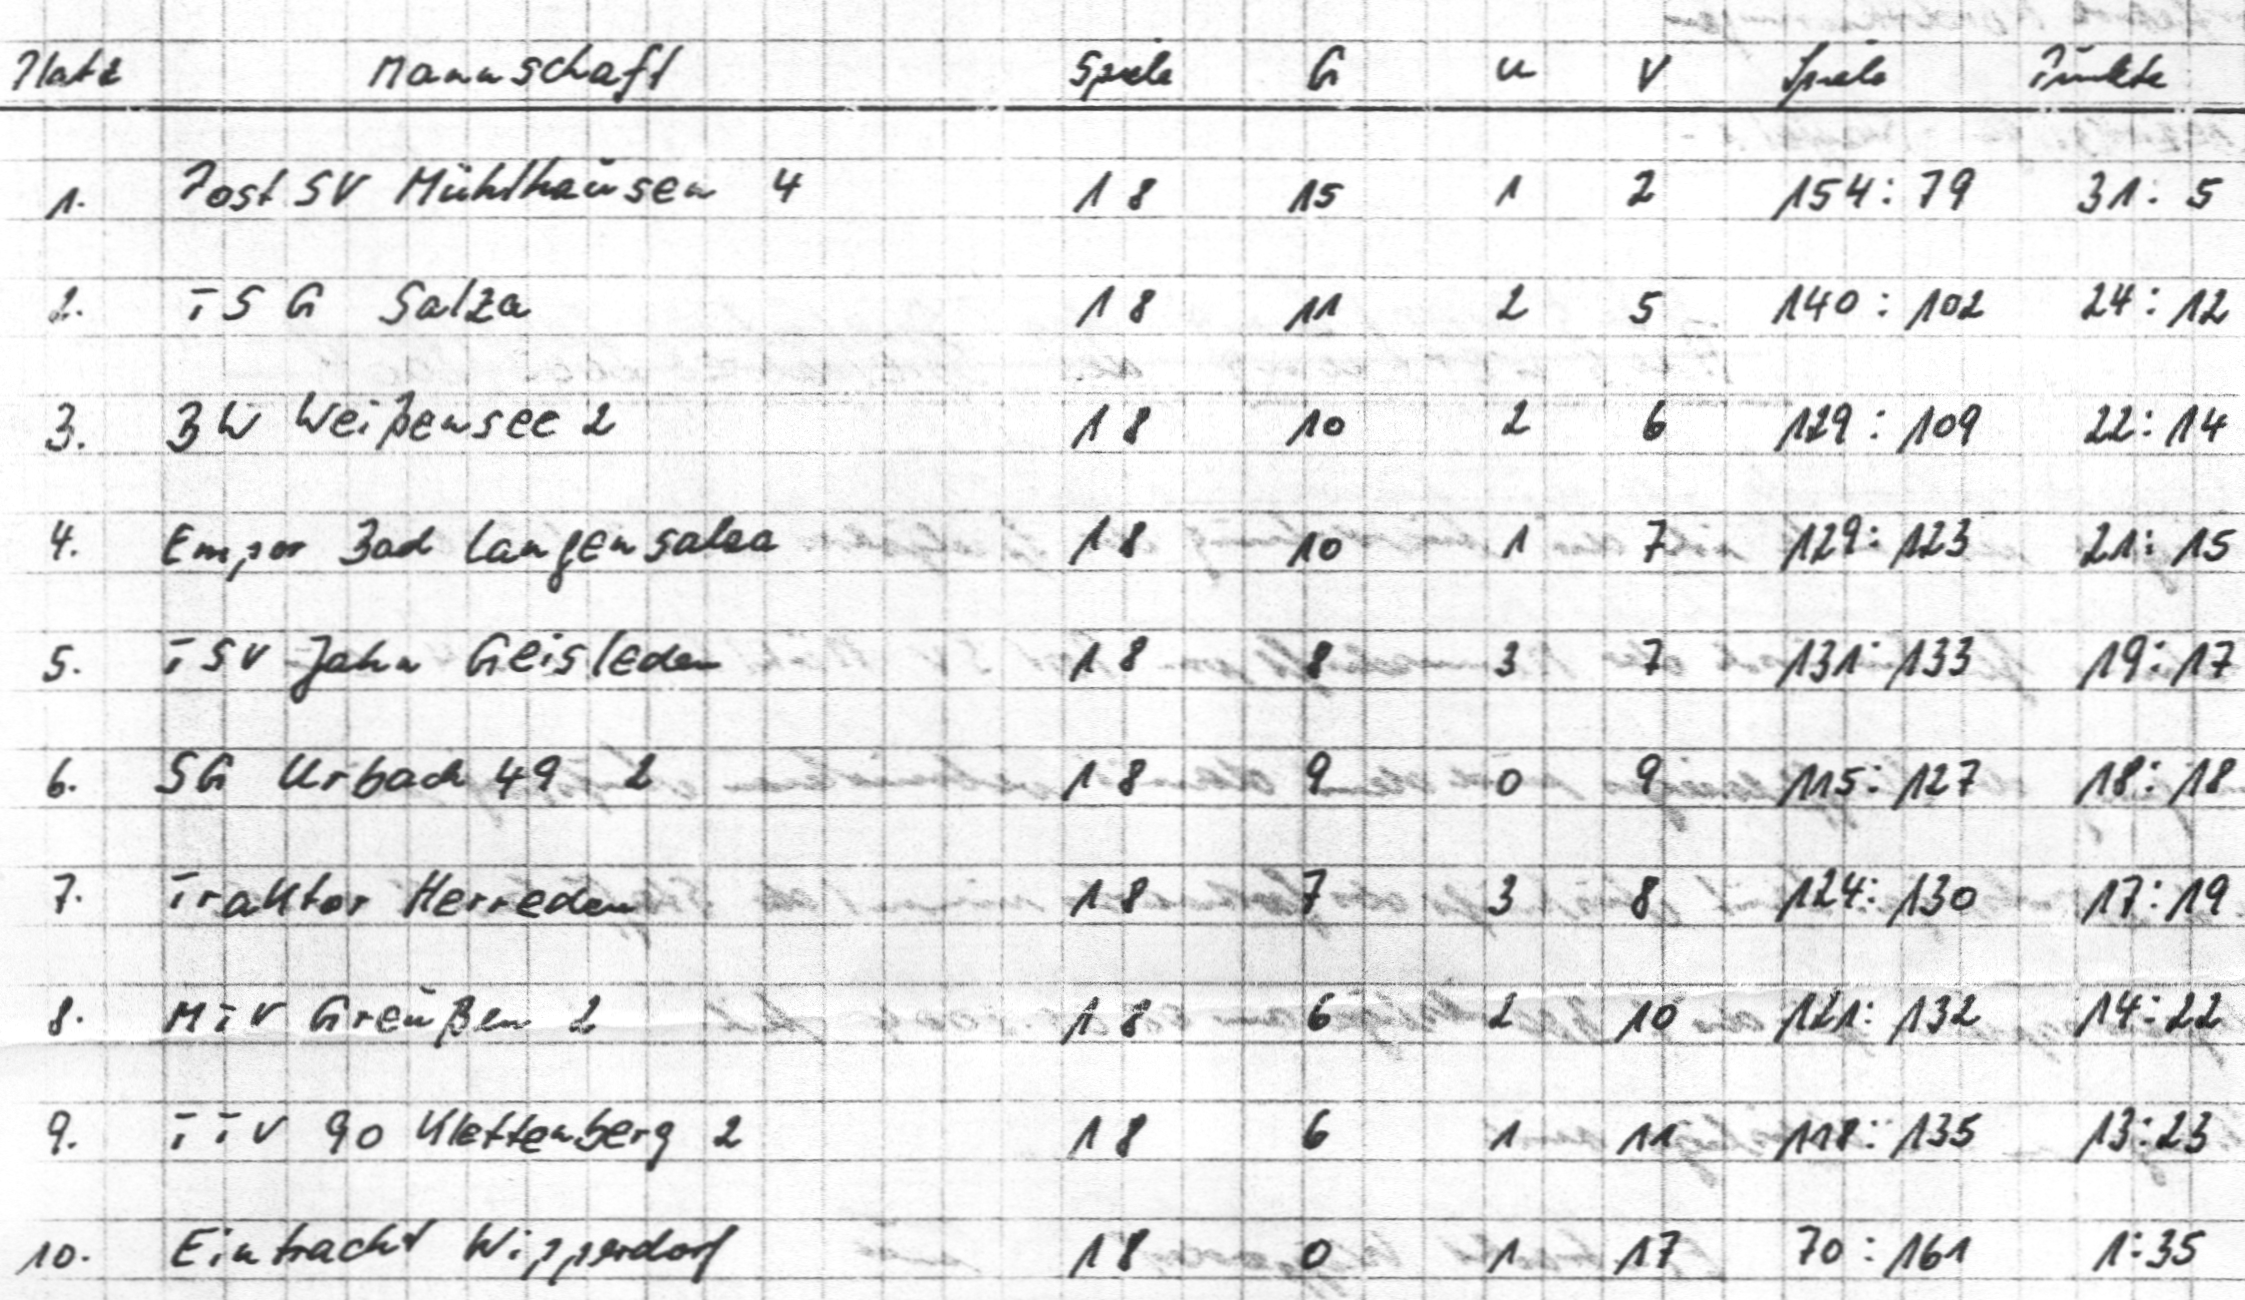 Platz Mannschaft Spiele G U V Spiele Punkte
1. Post SV Mühlhausen 4 18 15 1 2 154:79 31:5
2. TSG Salza 18 11 2 5 140:102 24:12
3. BW Weißensee 2 18 10 2 6 129:109 22:14
4. Empor Bad Langensalza 18 10 1 7 129:123 21:15
5. TSV Jahn Geisleden 18 8 3 7 131:133 19:17
6. SG Urbach 49 2 18 9 0 9 115:127 18:18
7. Traktor Herreden 18 7 3 8 124:130 17:19
8. MTV Greußen 2 18 6 2 10 121:132 14:22
9. TTV 90 Klettenberg 2 18 6 1 11 118:135 13:23
10. Eintracht Wipperdorf 18 0 1 17 70:161 1:35